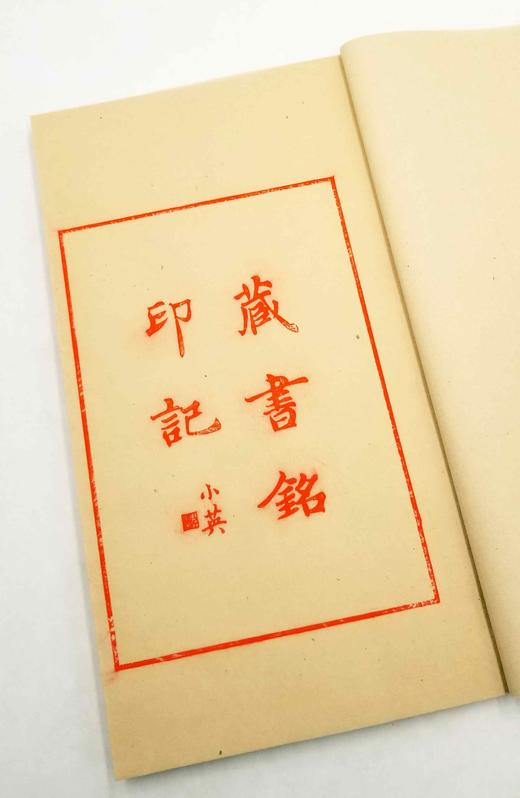 藏書銘
印記
小英